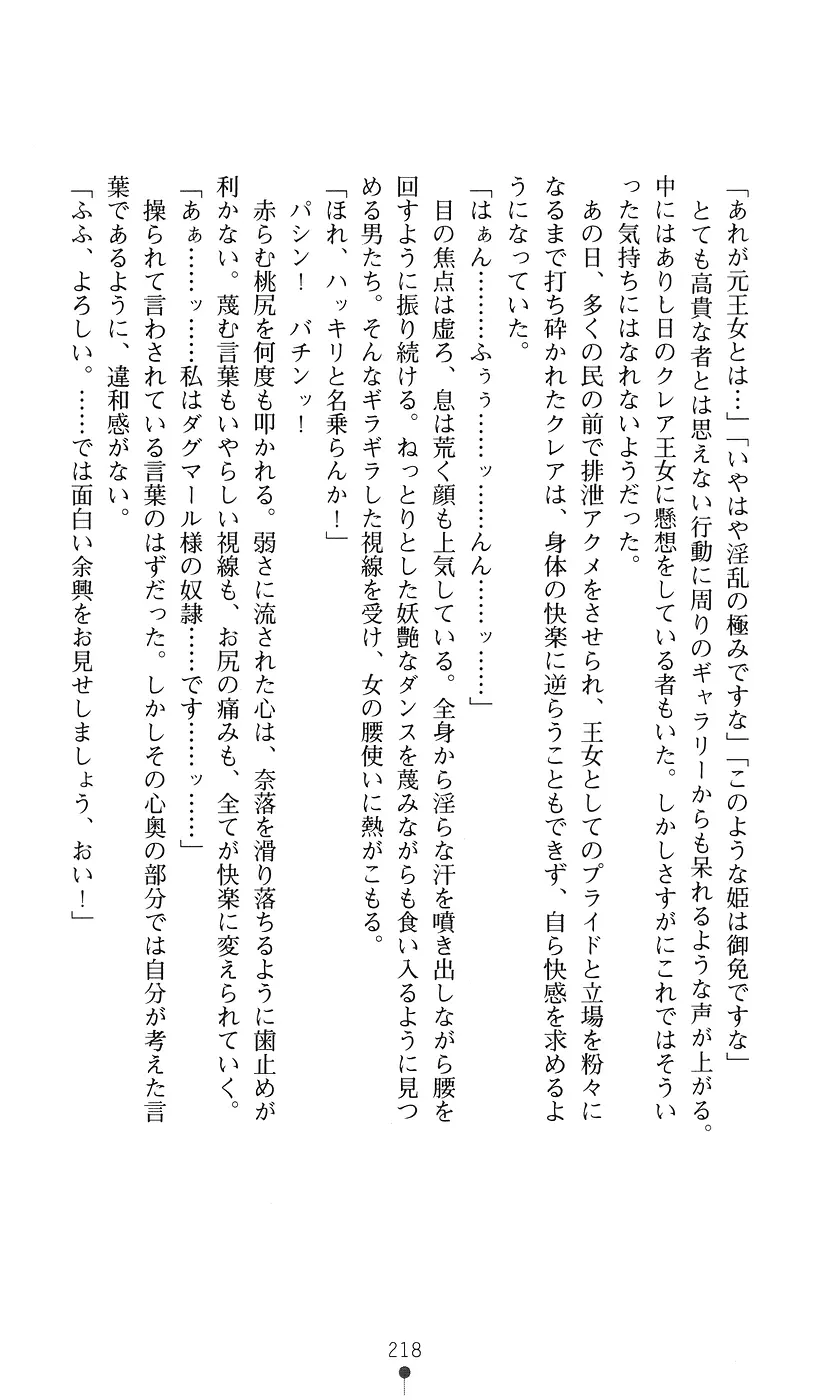 「あれが元王女とは…」「いやはや淫乱の極みですな」「このような姫は御免ですな」
　とても高貴な者とは思えない行動に周りのギャラリーからも呆れるような声が上がる。
中にはありし日のクレア王女に懸想をしている者もいた。しかしさすがにこれではそうい
った気持ちにはなれないようだった。
　あの日、多くの民の前で排泄アクメをさせられ、王女としてのプライドと立場を粉々に
なるまで打ち砕かれたクレアは、身体の快楽に逆らうこともできず、自ら快感を求めるよ
うになっていた。
「はぁん………ふぅぅ……ッ……んん……ッ……」
　目の焦点は虚ろ、息は荒く顔も上気している。全身から淫らな汗を噴き出しながら腰を
回すように振り続ける。ねっとりとした妖艶なダンスを蔑みながらも食い入るように見つ
める男たち。そんなギラギラした視線を受け、女の腰使いに熱がこもる。
「ほれ、ハッキリと名乗らんか！」
　パシン！　バチンッ！
　赤らむ桃尻を何度も叩かれる。弱さに流された心は、奈落を滑り落ちるように歯止めが
利かない。蔑む言葉もいやらしい視線も、お尻の痛みも、全てが快楽に変えられていく。
「あぁ……ッ……私はダグマール様の奴隷……です……ッ……」
　操られて言わされている言葉のはずだった。しかしその心奥の部分では自分が考えた言
葉であるように、違和感がない。
「ふふ、よろしい。……では面白い余興をお見せしましょう、おい！」
218